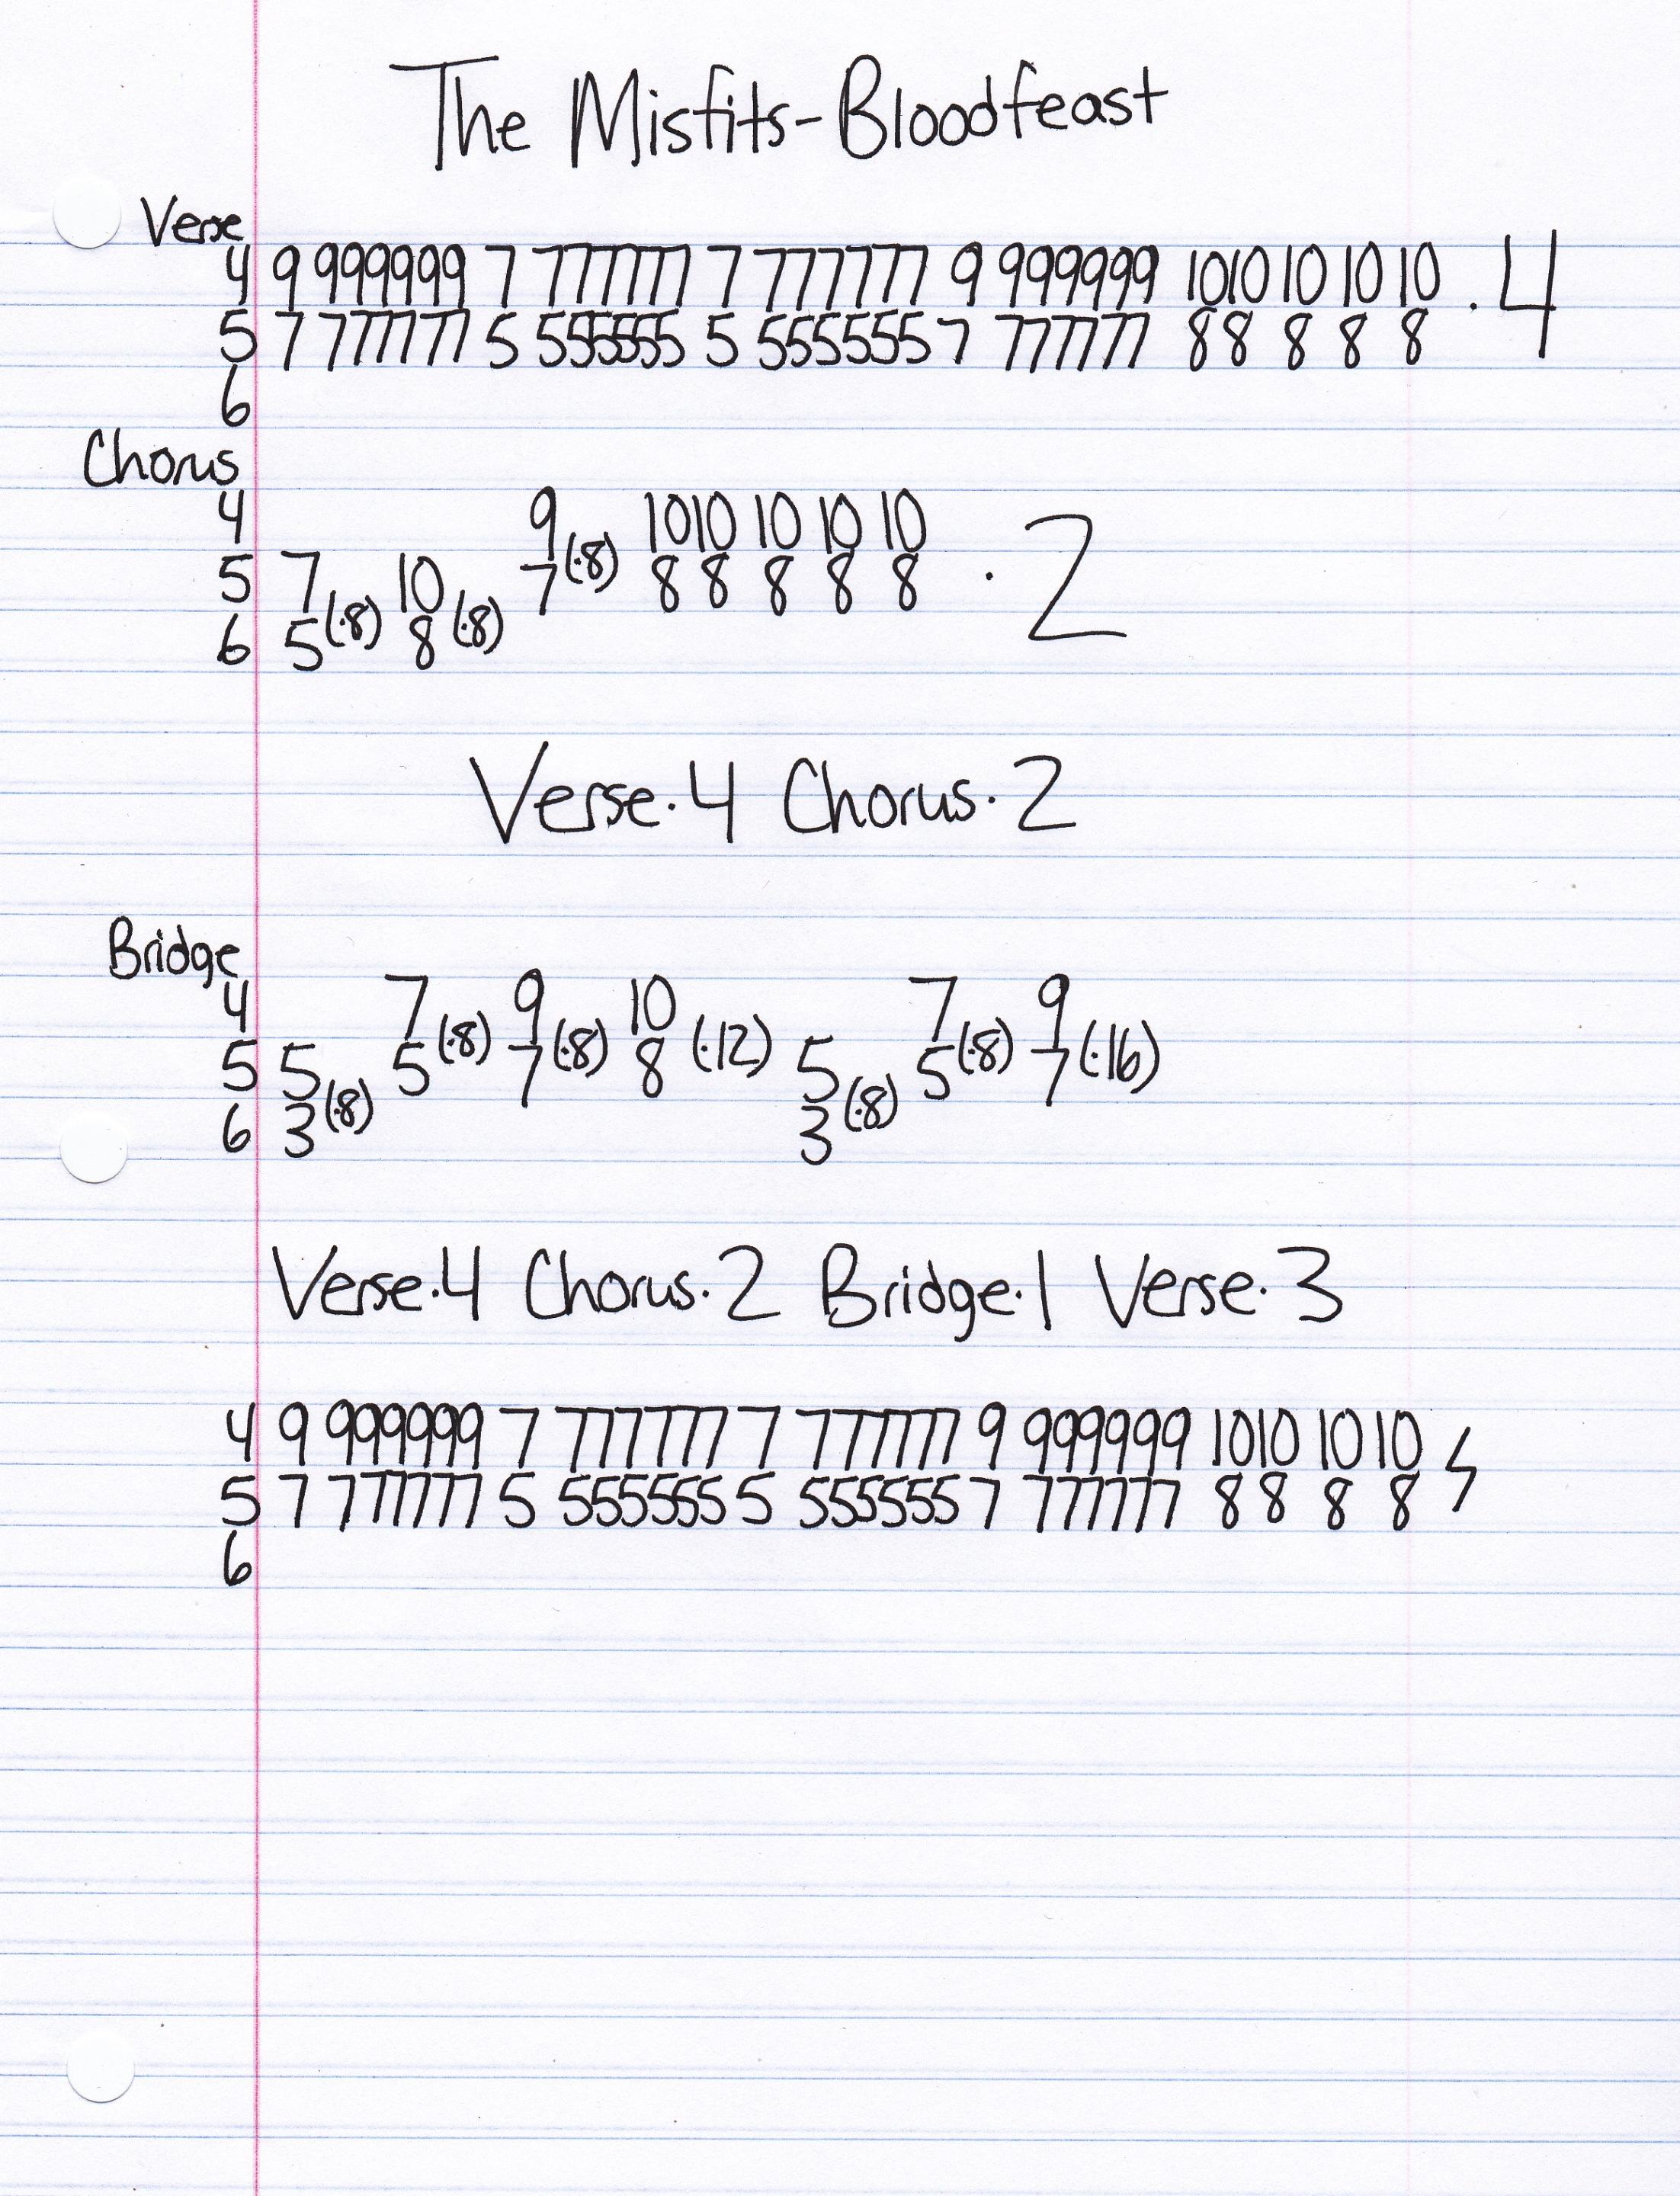 The Misfits-Bloodfeast
Verse
4 9 999999 7 777777 7 777777 9 999999 1010 10 10 10 · 4
5 7 777777 5 555555 5 555555 7 777777 88 8 8 8
6
Chorus
4 9 1010 10 10 10 · 2
5 7 10 7(·8) 8 8 8 8 8
6 5(·8) 8(·8)
Verse·4 Chorus·2
Bridge
4 7 9 10 7 9
5 5 5(·8) 7(·8) 8 (·12) 5 5(·8) 7(·16)
6 3(·8) 3(·8)
Verse·4 Chorus·2 Bridge·1 Verse·3
4 9 999999 7 777777 7 777777 9 999999 1010 10 10
5 7 777777 5 555555 5 555555 7 777777 8 8 8 8
6